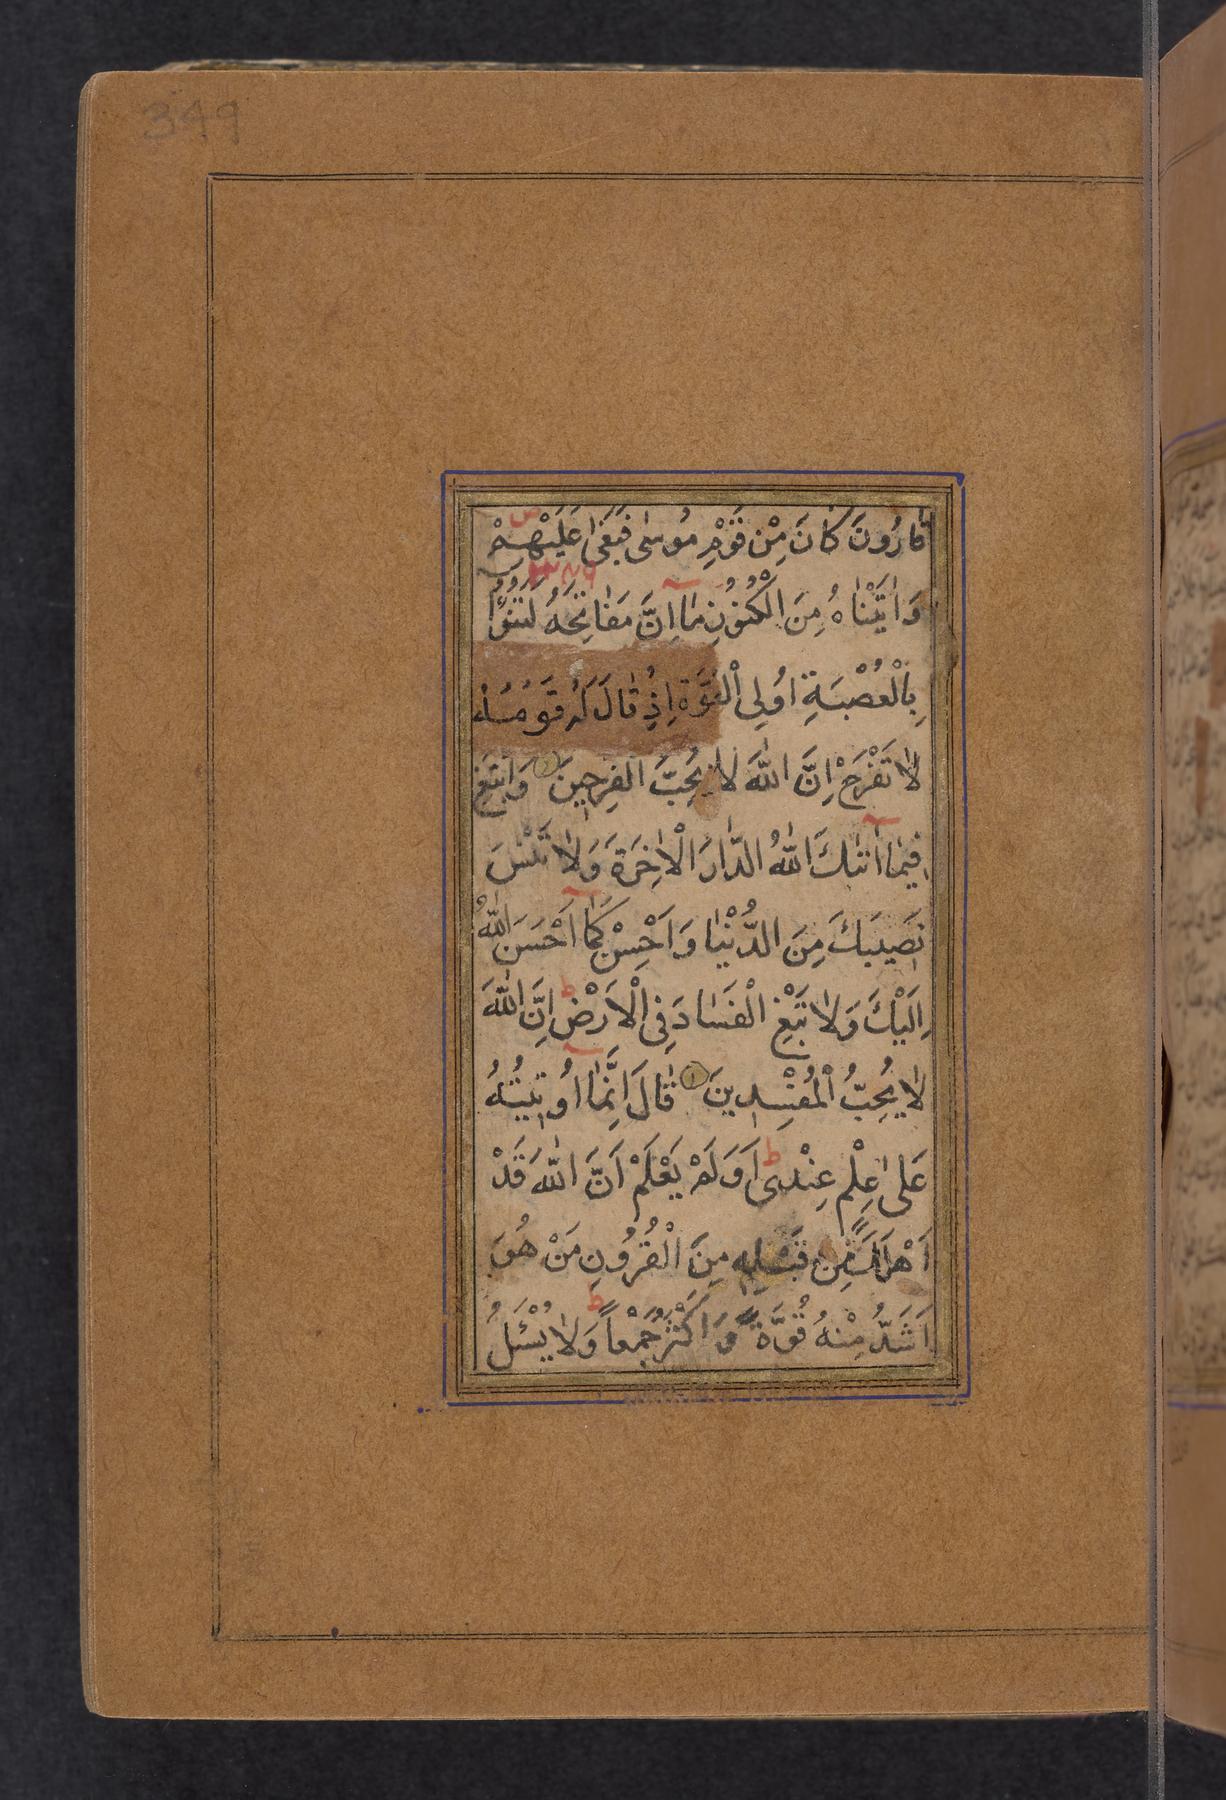 349
قٰارُونَ كٰانَ مِنْ قَوْمِ مُوسٰى فَبَغٰى عَلَيْهِمْ
وَاٰتَيْنٰاهُ مِنَ الْكُنُوزِ مٰا اِنَّ مَفٰاتِحَهُ لَتَنُوٓأُ
بِالْعُصْبَةِ اُولِى الْقُوَّةِ اِذْ قٰالَ لَهُ قَوْمُهُ
لٰا تَفْرَحْ اِنَّ اللّٰهَ لٰا يُحِبُّ الْفَرِحِينَ وَابْتَغِ
فِيمٰا اٰتٰىكَ اللّٰهُ الدّٰارَ الْاٰخِرَةَ وَلٰا تَنْسَ
نَصِيبَكَ مِنَ الدُّنْيٰا وَاَحْسِنْ كَمٰا اَحْسَنَ اللّٰهُ
اِلَيْكَ وَلٰا تَبْغِ الْفَسٰادَ فِى الْاَرْضِ ط اِنَّ اللّٰهَ
لٰا يُحِبُّ الْمُفْسِدِينَ قٰالَ اِنَّمٰا اُوتِيتُهُ
عَلٰى عِلْمٍ عِنْدِى ط اَوَلَمْ يَعْلَمْ اَنَّ اللّٰهَ قَدْ
اَهْلَكَ مِنْ قَبْلِهِ مِنَ الْقُرُونِ مَنْ هُوَ
اَشَدُّ مِنْهُ قُوَّةً وَاَكْثَرُ جَمْعاً ط وَلٰا يُسْئَلُ